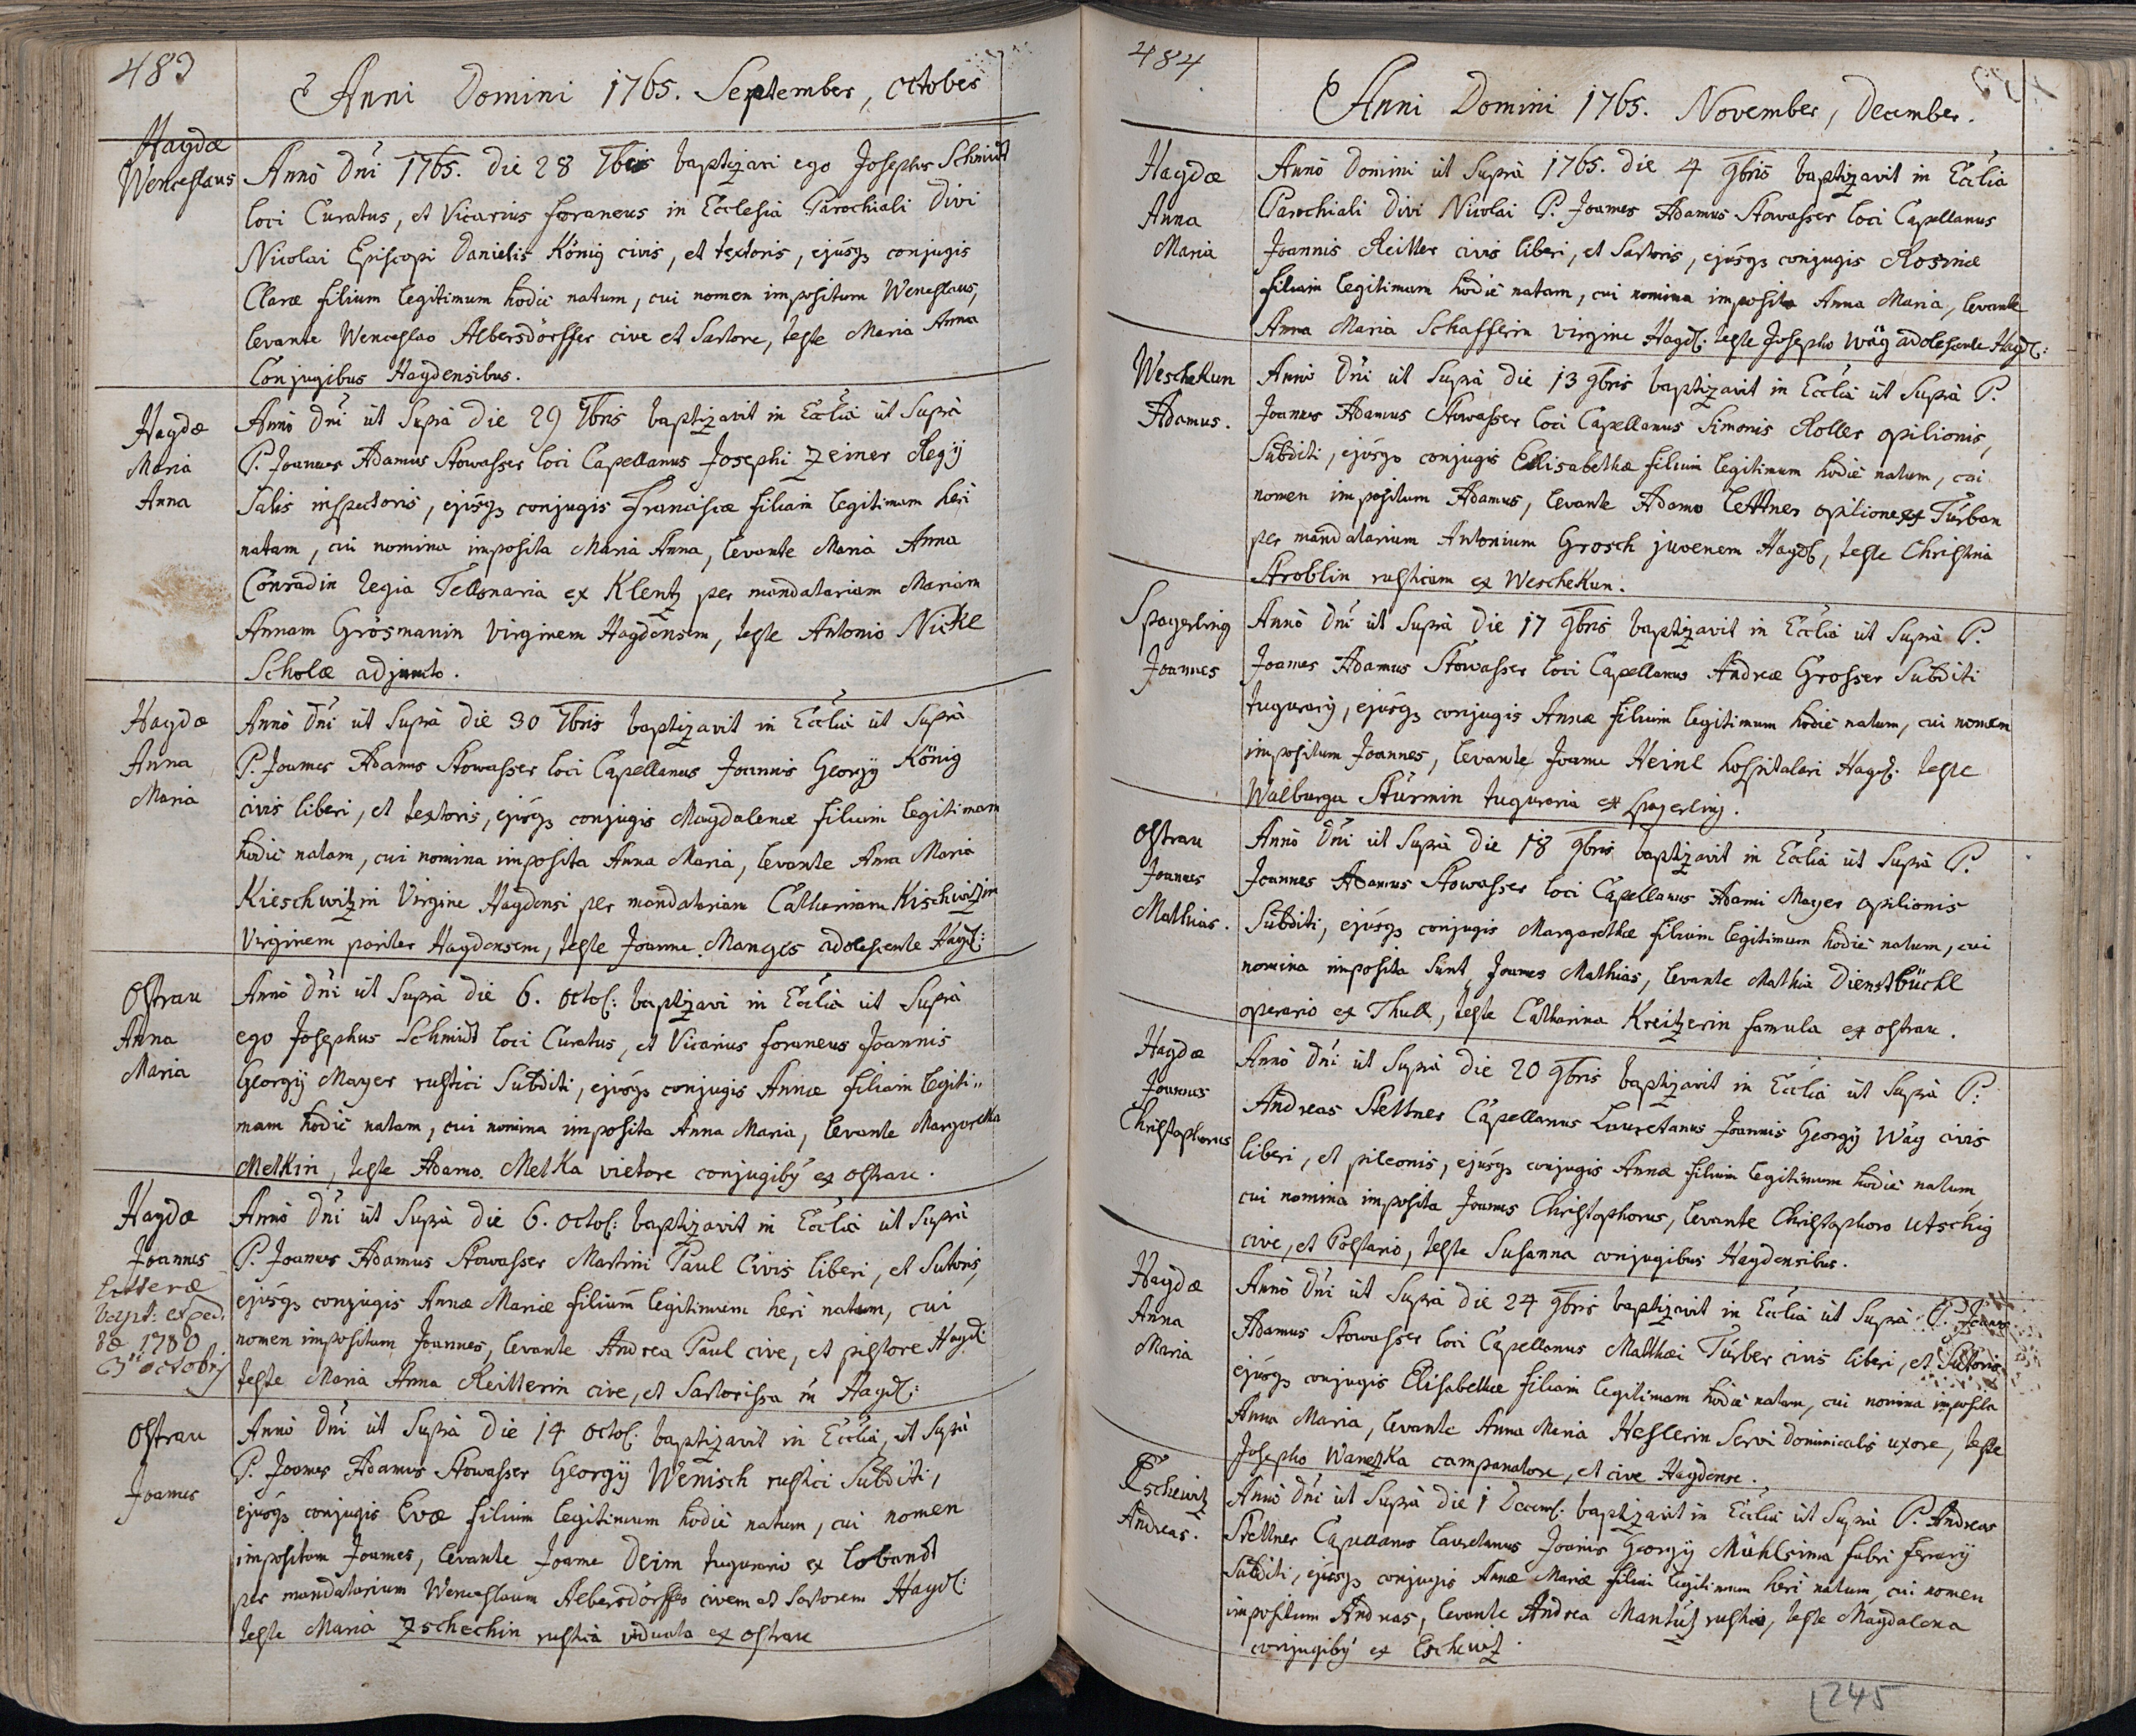 483
Anni Domini 1765. September, october
Haydæ
Wenceslaus
Annò Dni 1765. Die 28 7bris baptizavi ego Josephus Schmidt
loci Curatus, et Vicarius foraneus in Ecclesia Parochiali Divi
Nicolai Episcopi Danielis König civis, et textoris, ejusq3 conjugis
Claræ filium legitimum hodiè natum, cui nomen impositum Wenceslaus,
levante Wenceslao Albersdörffer cive et Sartore, teste Maria Anna
Conjugibus Haydensibus.
Haydæ
Maria
Anna
Annò Dni ut Suprà die 29 7bris baptizavit in Ecclià ut Suprà
P. Joannes Adamus Stowasser loci Capellanus Josephi Zeiner Regÿ
Salis inspectoris, ejusq3 conjugis Franciscæ filiam legitimam heri
natam, cui nomina imposita Maria Anna, levante Marià Anna
Conradin regia Telonaria ex Klentz per mandatariam Mariam
Annam Grösmanin Virginem Haydensem, teste Antonio Nickl
Scholæ adjuncto.
Haydæ
Anna
Maria
Annò Dni ut Suprà die 30 7bris baptizavit in Ecclià ut Suprà
P. Joannes Adamus Stowasser loci Capellanus Joannis Georgÿ König
civis liberi, et textoris, ejusq3 conjugis Magdalenæ filiam legitimam
hodiè natam, cui nomina imposita Anna Maria, levante Anna Maria
Kieschwitzin Virgine Haydensi per mandatariam Catharinam Kischwitzin
Virginem pariter Haydensem, teste Joanne Manges adolescente Hayd:
Ostrau
Anna
Maria
Annò Dni ut Suprà die 6. octob: baptizavi in Ecclià ut Suprà
ego Josephus Schmidt loci Curatus, et Vicarius foraneus Joannis
Georgÿ Mayer rustici Subditi, ejusq3 conjugis Annæ filiam legiti„
mam hodiè natam, cui nomina imposita Anna Maria, levante Margaretha
Metkin, teste Adamo Metka vietore conjugibus ex ostrau.
Haydæ
Joannes
litteræ
bapt: exped.
de 1780
octobris
Annò Dni ut Suprà die 6. octob: baptizavit in Ecclià ut Suprà
P. Joannes Adamus Stowasser Martini Paul Civis liberi, et Sutoris,
ejusq3 conjugis Annæ Mariæ filium legitimum heri natum, cui
nomen impositum Joannes, levante Andrea Paul cive, et pistore Hayd:
teste Maria Anna Reitterin cive, et Sartorissa in Hayd:
Ostrau
Joannes
Annò Dni ut Suprà die 14 octob: baptizavit in Ecclià ut Suprà
P. Joannes Adamus Stowasser Georgÿ Wenisch rustici Subditi,
ejusq3 conjugis Evæ filium legitimum hodiè natum, cui nomen
impositum Joannes, levante Joanne Deim tugurario ex Lobandt
per mandatarium Wenceslaum Albersdörffer civem et Sartorem Hayd:
teste Marià Zschechin rusticà viduata ex ostrau
484
Anni Domini 1765. November, December.
Haydæ
Anna
Maria
Annò Domini ut Suprà 1765. die 4 9bris baptizavit in Ecclià
Parochiali Divi Nicolai P. Joannes Adamus Stowasser loci Capellanus
Joannis Reitter civis liberi, et Sartoris, ejusq3 conjugis Rosinæ
filiam legitimam hodiè natam, cui nomina imposita Anna Maria, levante
Anna Maria Schafferin virgine Hayd: teste Josepho Wäg adolescente Hayd:
Weschekun
Adamus.
Annò Dni ut Suprà die 13 9bris baptizavit in Ecclià ut Suprà P.
Joannes Adamus Stowasser loci Capellanus Simonis Roller opilionis,
Subditi, ejusq3 conjugis Elisabethæ filium legitimum hodiè natum, cui
nomen impositum Adamus, levante Adamo Lettner opilione ex Turban
per mandatarium Antonium Grosch juvenem Hayd:, teste Christina
Stroblin rusticam ex Weschekun.
Spayerling
Joannes
Annò Dni ut Suprà die 17 9bris baptizavit in Ecclià ut Suprà P.
Joannes Adamus Stowasser loci Capellanus Andreæ Grosser Subditi
tugurarÿ, ejusq3 conjugis Annæ filium legitimum hodiè natum, cui nomen
impositum Joannes, levante Joanne Heinl hospitalari Hayd: teste
Walburga Sturmin tuguraria ex Spayerling.
Ostrau
Joannes
Mathias.
Annò Dni ut Suprà die 18 9bris baptizavit in Ecclià ut Suprà P.
Joannes Adamus Stowasser loci Capellanus Adami Mayer opilionis
Subditi, ejusq3 conjugis Margarethæ filium legitimum hodiè natum, cui
nomina imposita sunt Joannes Mathias, levante Mathia Dienstbüchl
operario ex Thull, teste Catharina Kreitzerin famula ex ostrau.
Haydæ
Joannes
Christophorus
Annò Dni ut Suprà die 20 9bris baptizavit in Ecclià ut Suprà P:
Andreas Stettner Capellanus Lauretanus Joannis Georgÿ Wäg civis
liberi, et pileonis, ejusq3 conjugis Annæ filium legitimum hodiè natum,
cui nomina imposita Joannes Christophorus, levante Christophoro Utschig
cive, et Postario, teste Susanna conjugibus Haydensibus.
Haydæ
Anna
Maria
Annò Dni ut Suprà die 24 9bris baptizavit in Ecclià ut Suprà P. Joannes
Adamus Stowasser loci Capellanus Matthæi Türber civis liberi, et Sutoris
ejusq3 conjugis Elisabethæ filiam legitimam hodiè natam, cui nomina imposita
Anna Maria, levante Anna Maria Heslerin Servi dominicalis uxore, teste
Josepho Wanetzka campanatore, et cive Haydense.
Eschewitz
Andreas.
Annò Dni ut Suprà die 1 Decemb: baptizavit in Ecclià ut Suprà P. Andreas
Stettner Capellanus Lauretanus Joannis Georgÿ Mühlsima fabri ferrarÿ
Subditi, ejusq3 conjugis Annæ Mariæ filium legitimum heri natum, cui nomen
impositum Andreas, levante Andrea Mantúz rustico, teste Magdalena
conjugibus ex Eschewitz.
245